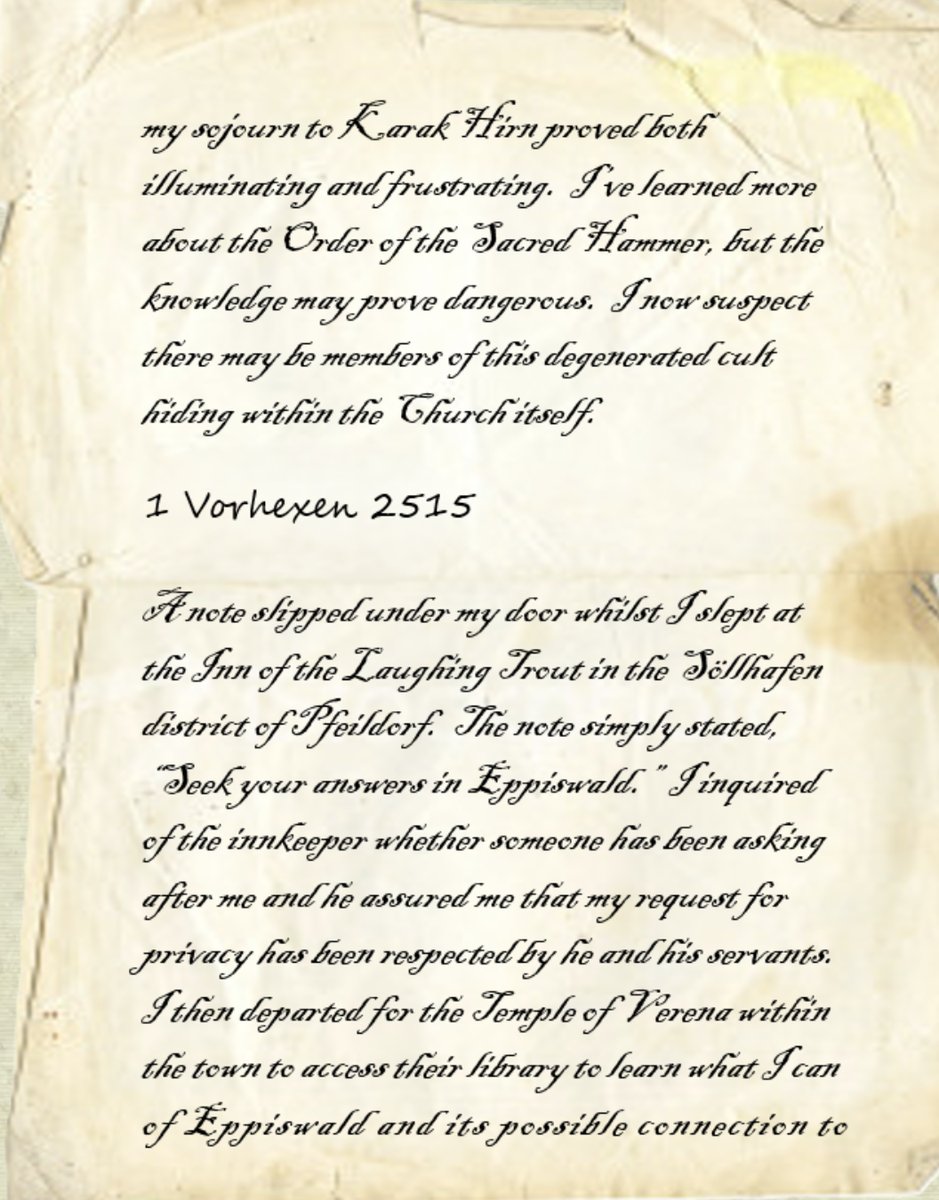 my sojourn to Karak Hirn proved both
illuminating and frustrating. I've learned more
about the Order of the Sacred Hammer, but the
knowledge may prove dangerous. I now suspect
there may be members of this degenerated cult
hiding within the Church itself.
1 Vorhexen 2515
A note slipped under my door whilst I slept at
the Inn of the Laughing Trout in the Söllhafen
district of Pfeildorf. The note simply stated,
“Seek your answers in Eppiswald.” I inquired
of the innkeeper whether someone has been asking
after me and he assured me that my request for
privacy has been respected by he and his servants.
I then departed for the Temple of Verena within
the town to access their library to learn what I can
of Eppiswald and its possible connection to